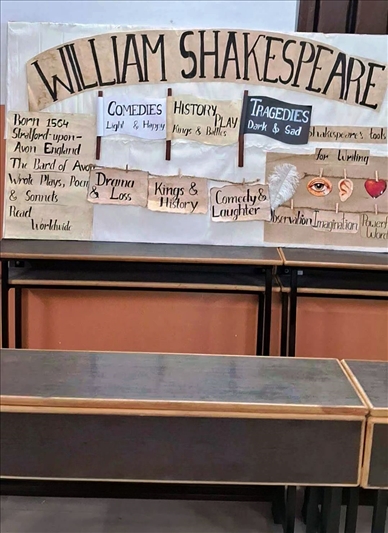 WILLIAM SHAKESPEARE
Born 1564
Stratford-upon-
Avon England
The Bard of Avon
Wrote Plays, Poem
& Sonnets
Read
Worldwide
COMEDIES
Light & Happy
HISTORY
PLAY
Kings & Battles
TRAGEDIES
Dark & Sad
Drama
& Loss
Kings &
History
Comedy &
Laughter
Shakespeare's tools
for Writing
Observation
Imagination
Powerf
Word